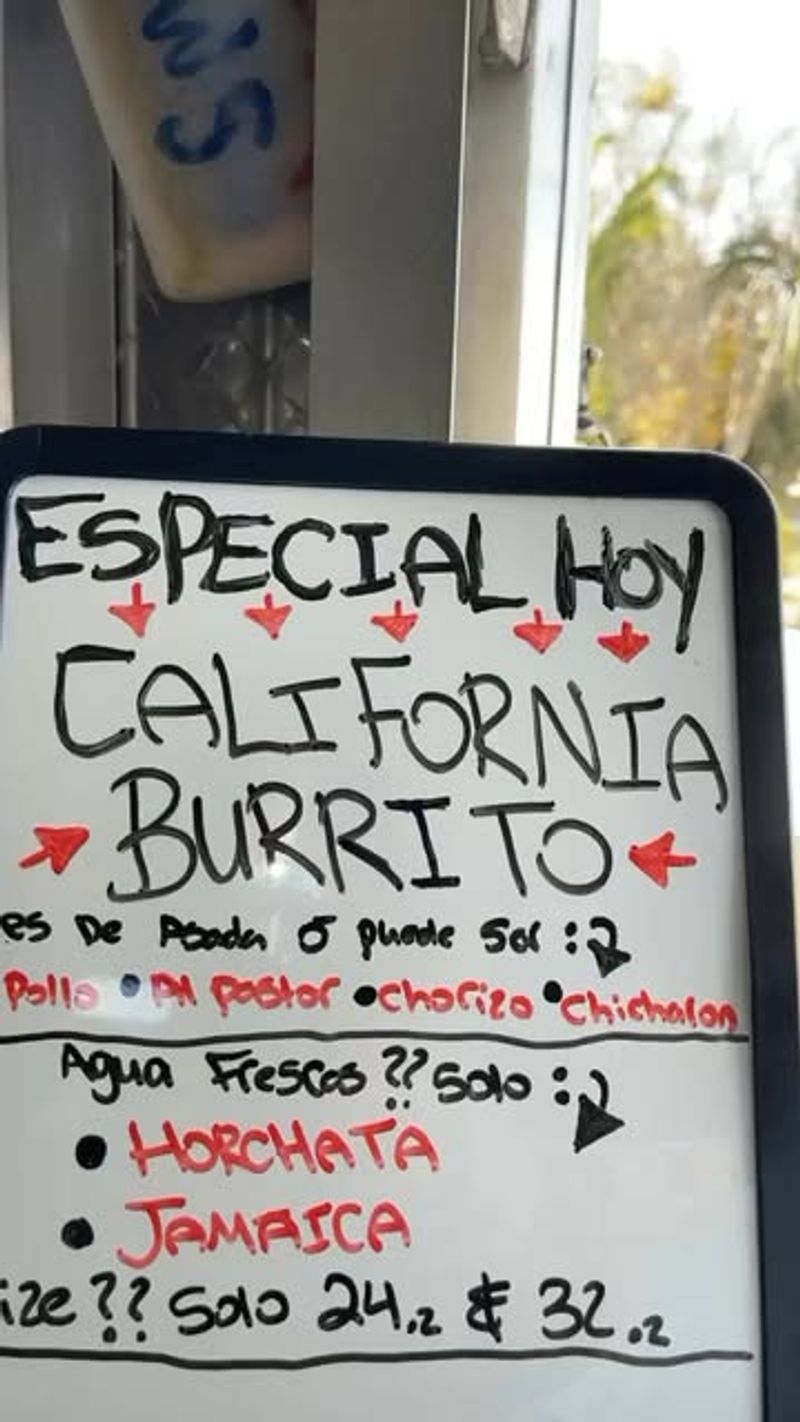 SM
ESPECIAL HOY
CALIFORNIA
BURRITO
es De Asada ó puede Ser :
Pollo • Al pastor • Chorizo • Chicharon
Agua Frescas ?? Solo :
• HORCHATA
• JAMAICA
ize ?? Solo 24.z & 32.z